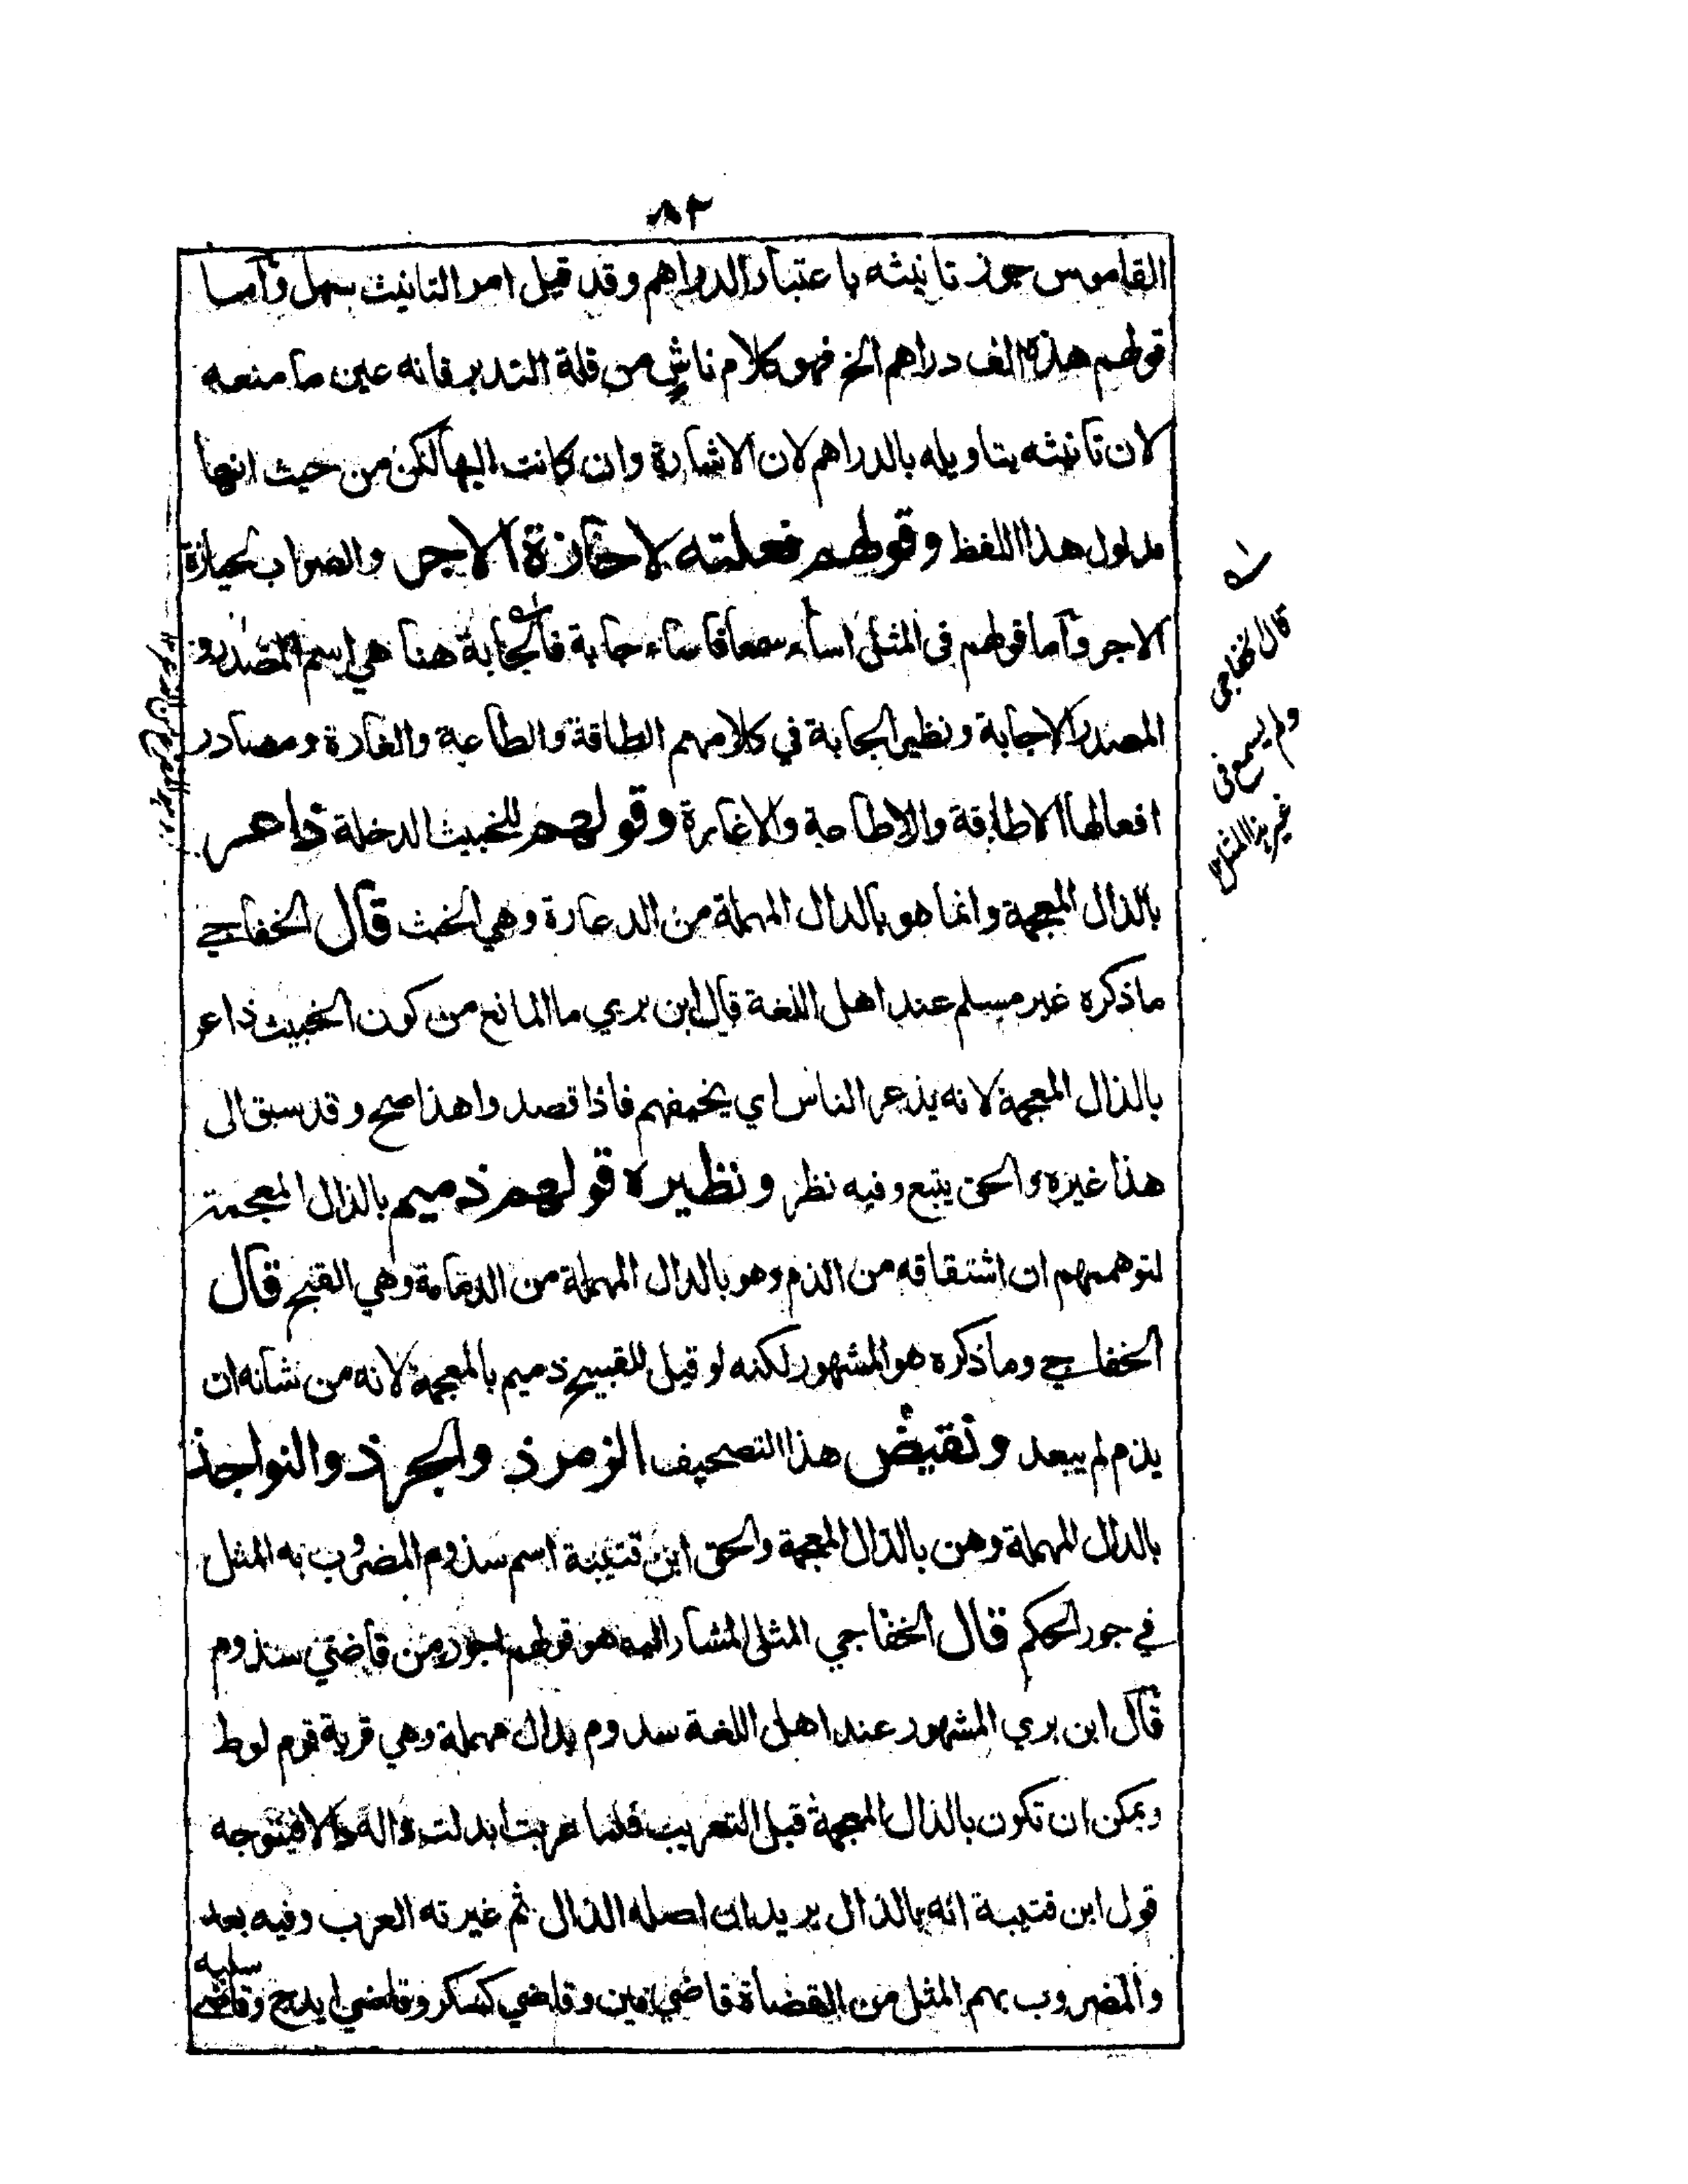 ٨٣
القاموس جوز تانيثه باعتبار الدراهم وقد قيل امر التانيث سهل وأما
قولهم هذه الف دراهم الخ فهو كلام ناشٍ من قلة التدبر فانه عين ما منعه
لان تأنيثه بتاويله بالدراهم لان الاشارة وان كانت اليها لكن من حيث انها
مدلول هذا اللفظ وقولهم فعلته لاحازة الاجر والصواب لحيازة
الاجر وأما قولهم في المثل اساء سمعا فاساء جابة فالجابة هنا هي اسم المصدر و
المصدر الاجابة ونظير الجابة في كلامهم الطاقة والطاعة والغارة ومصادر
افعالها الاطاقة والاطاعة والاغارة وقولهم للخبيث الدخلة ذاعر
بالذال المعجمة وانما هو بالدال المهملة من الدعارة وهي الخبث قال الخفاجي
ما ذكره غير مسلم عند اهل اللغة قال ابن بري ما المانع من كون الخبيث ذاعر
بالذال المعجمة لانه يذعر الناس اي يخيفهم فاذا قصدوا هذا صح وقد سبق الى
هذا غيره والحق يتبع وفيه نظر ونظيره قولهم ذميم بالذال المعجمة
لتوهمهم ان اشتقاقه من الذم وهو بالدال المهملة من الدمامة وهي القبح قال
الخفاجي وما ذكره هو المشهور لكنه لو قيل للقبيح ذميم بالمعجمة لانه من شانه ان
يذم لم يبعد ونقيض هذا التصحيف الزمرذ والجرذ والنواجذ
بالدال المهملة وهن بالذال المعجمة والحق ابن قتيبة اسم سذوم المضروب به المثل
في جور الحكم قال الخفاجي المثل المشار اليه هو قولهم اجور من قاضي سذوم
قال ابن بري المشهور عند اهل اللغة سدوم بدال مهملة وهي قرية قوم لوط
ويمكن ان تكون بالذال المعجمة قبل التعريب فلما عربت ابدلت ذاله دالا فيتوجه
قول ابن قتيبة انه بالذال يريد ان اصله الذال ثم غيرته العرب وفيه بعد
والمضروب بهم المثل من القضاة قاضي منى وقاضي كسكر وقاضي ايدج وقاضي
قال الخفاجي
ولم يسمع في
غير هذا المثل